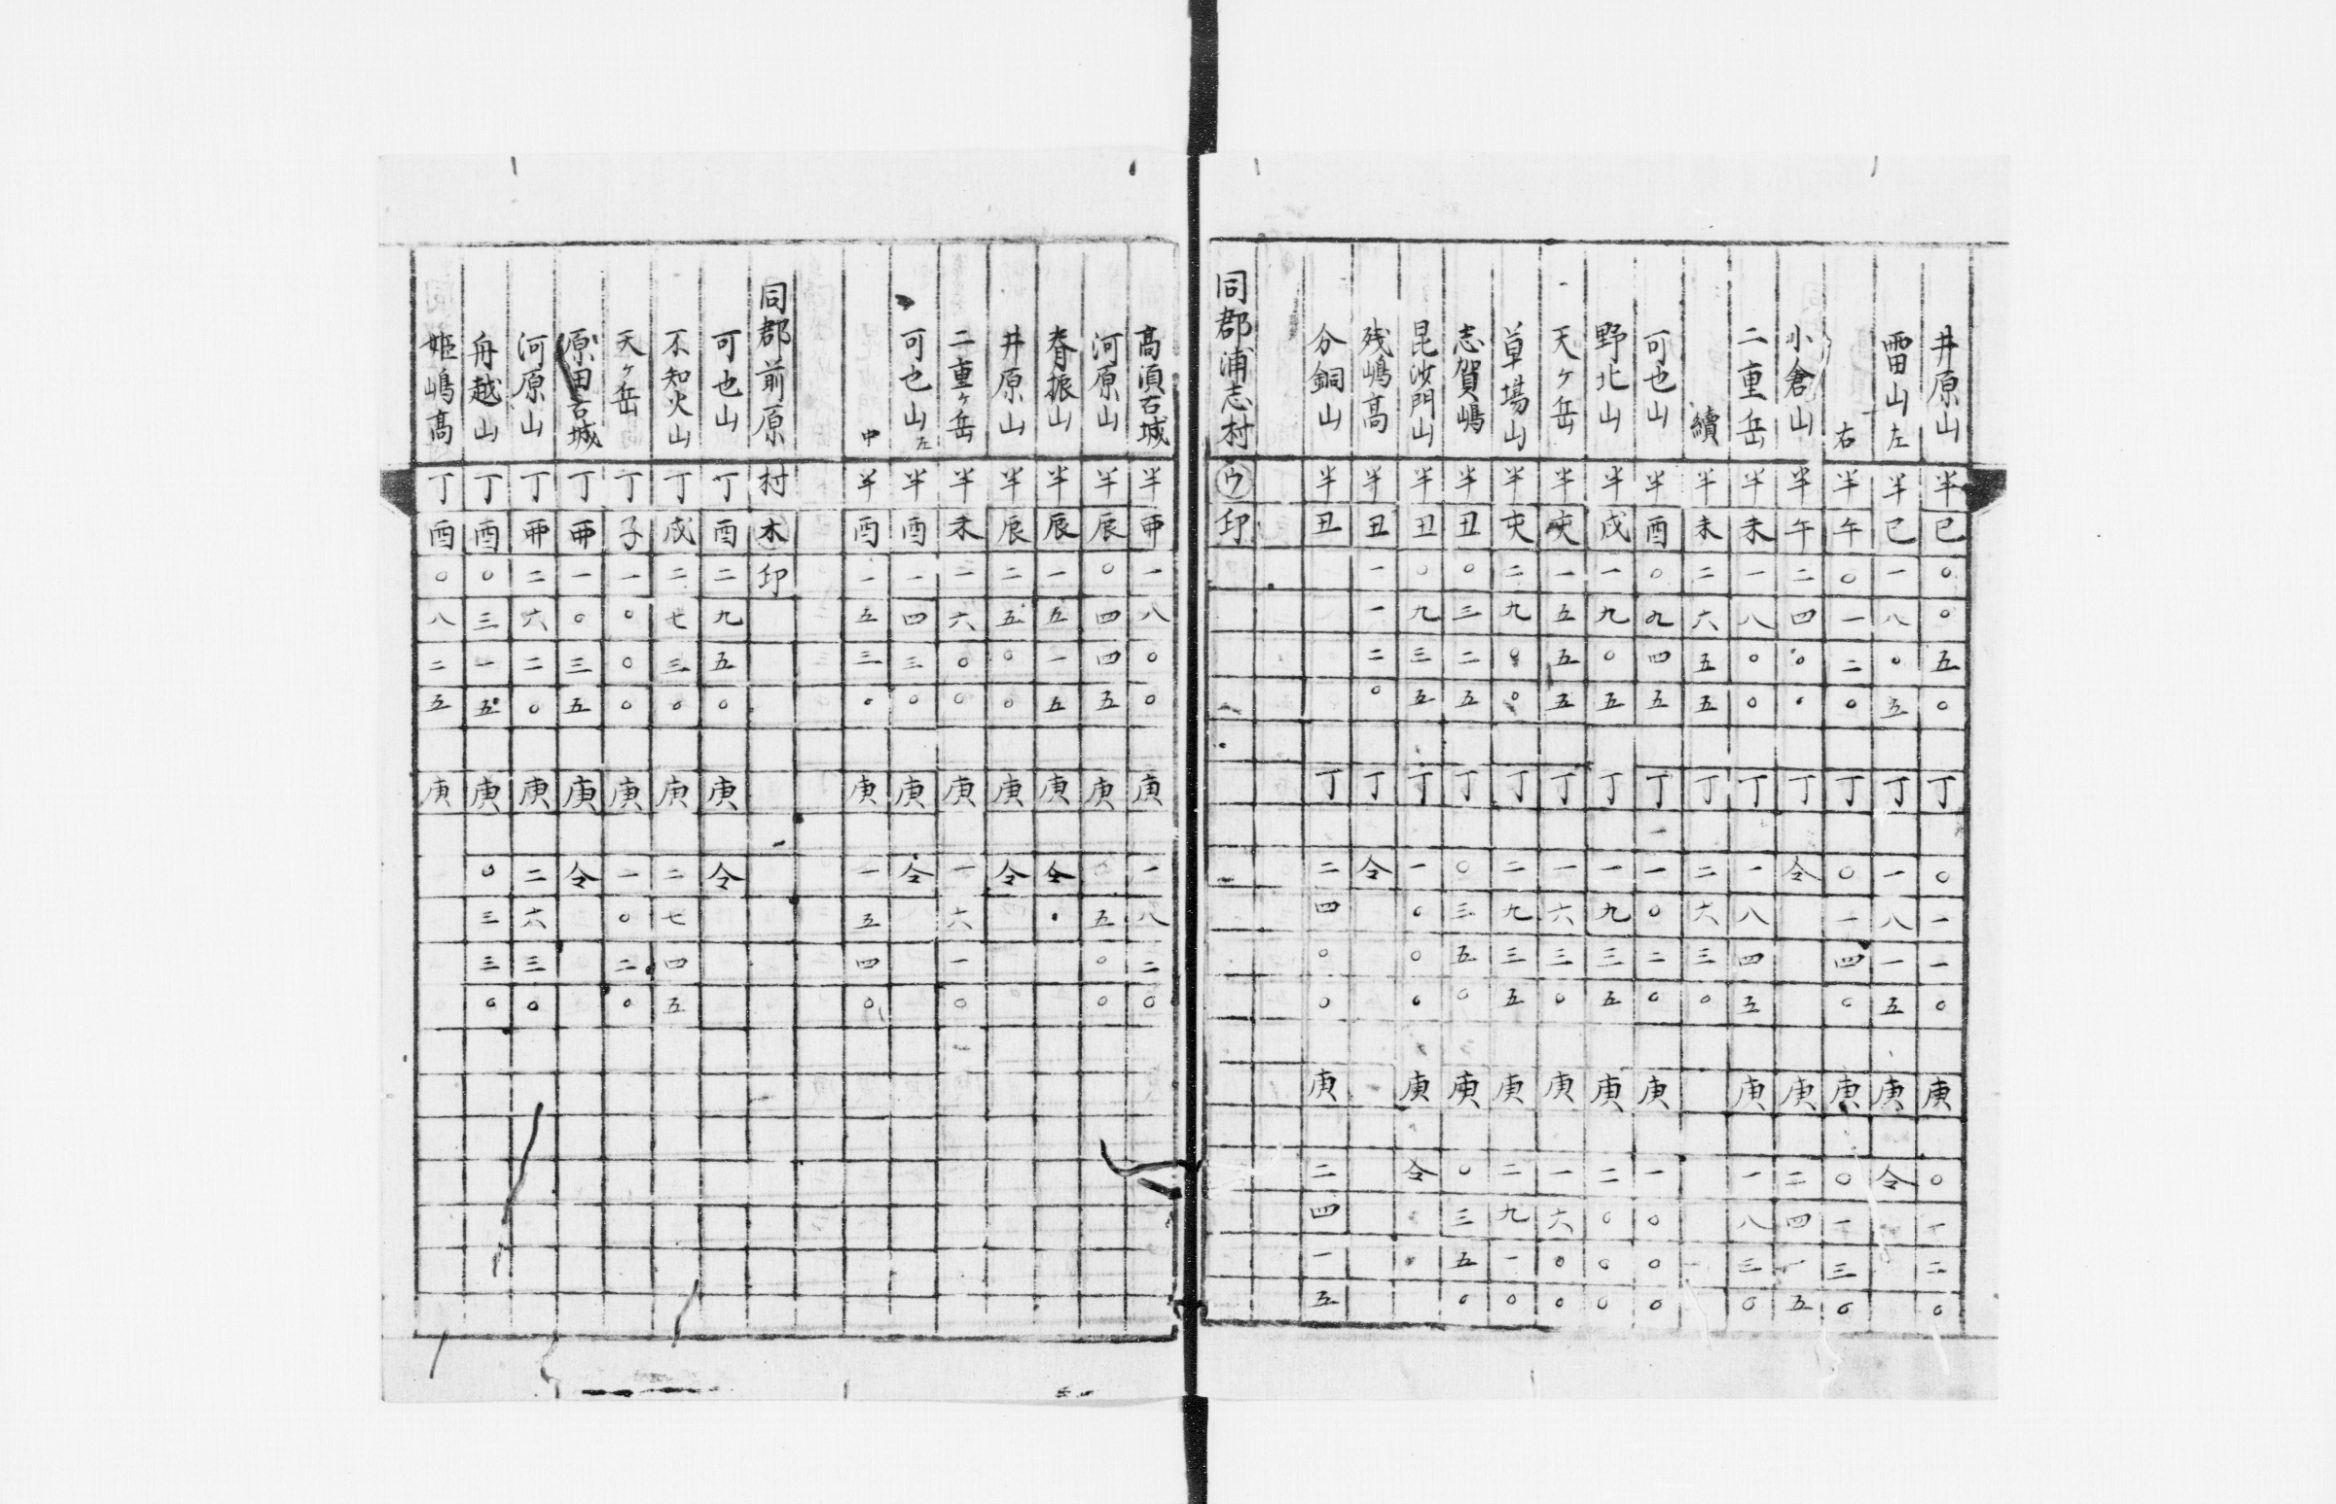 井原山 半 巳 〇 〇 五 〇 丁 〇 一 一 〇 庚 〇 一 二 〇
雷山左 半 巳 一 八 〇 五 丁 一 八 一 五 庚 令
右 半 午 〇 一 二 〇 丁 〇 一 四 〇 庚 〇 一 三 〇
小倉山 半 午 二 四 〇 〇 丁 令 庚 二 四 一 五
二重岳 半 未 一 八 〇 〇 丁 一 八 四 五 庚 一 八 三 〇
續 半 未 二 六 五 五 丁 二 六 三 〇
可也山 半 酉 〇 九 四 五 丁 一 一 〇 二 〇 庚 一 〇 〇 〇
野北山 半 戌 一 九 〇 五 丁 一 九 三 五 庚 二 〇 〇 〇
天ケ岳 半 亥 一 五 五 五 丁 一 六 三 〇 庚 一 六 〇 〇
草場山 半 亥 二 九 〇 〇 丁 二 九 三 五 庚 二 九 一 〇
志賀嶋 半 丑 〇 三 二 五 丁 〇 三 五 〇 庚 〇 三 五 〇
昆沙門山 半 丑 〇 九 三 五 丁 一 〇 〇 〇 庚 令
残嶋高 半 丑 一 一 二 〇 丁 令
分銅山 半 丑 丁 二 四 〇 〇 庚 二 四 一 五
同郡浦志村 ウ 印
高須古城 半 申 一 八 〇 〇 庚 一 八 二 〇
河原山 半 辰 〇 四 四 五 庚 五 〇 〇
脊振山 半 辰 一 五 一 五 庚 令
井原山 半 辰 二 五 〇 〇 庚 令
二重ケ岳 半 未 一 六 〇 〇 庚 一 六 一 〇
可也山左 半 酉 一 四 三 〇 庚 令
中 半 酉 一 五 三 〇 庚 一 五 四 〇
同郡前原村 木 印
可也山 丁 酉 二 九 五 〇 庚 令
不知火山 丁 戌 二 七 三 〇 庚 二 七 四 五
天ケ岳 丁 子 一 〇 〇 〇 庚 一 〇 二 〇
原田古城 丁 申 一 〇 三 五 庚 令
河原山 丁 申 二 六 二 〇 庚 二 六 三 〇
舟越山 丁 酉 〇 三 一 五 庚 〇 三 三 〇
姫嶋高 丁 酉 〇 八 二 五 庚